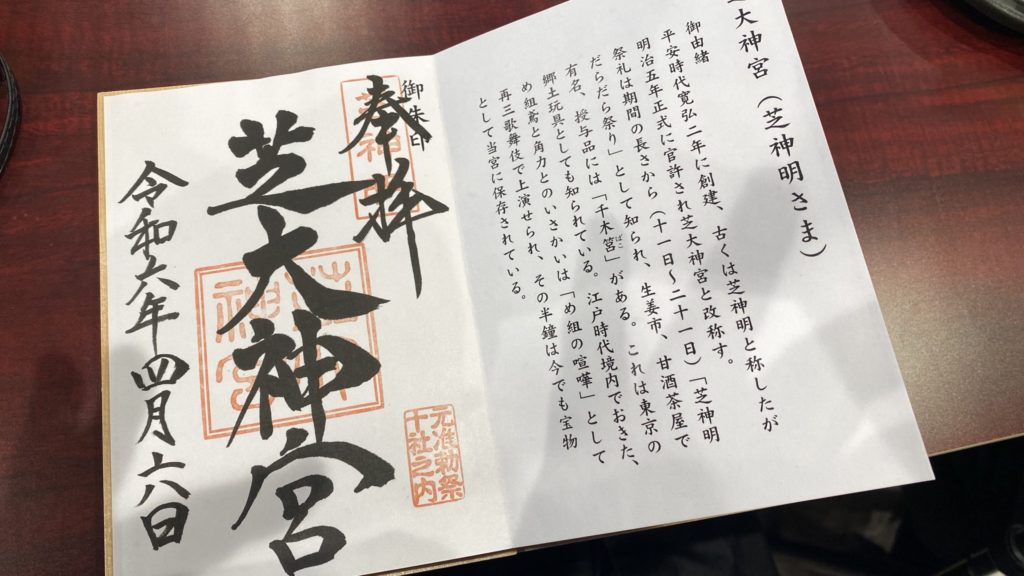 芝大神宮(芝神明さま)
御由緒
平安時代寛弘二年に創建、古くは芝神明と称したが
明治五年正式に官許され芝大神宮と改称す。
祭礼は期間の長さから(十一日〜二十一日)「芝神明
だらだら祭り」として知られ、生姜市、甘酒茶屋で
有名、授与品には「千木筥」がある。これは東京の
ばこ
郷土玩具としても知られている。江戸時代境内でおきた、
め組鳶と角力とのいさかいは「め組の喧嘩」として
再三歌舞伎で上演せられ、その半鐘は今でも宝物
として当宮に保存されている。
御朱印
奉拝
元准勅祭
十社之内
芝大神宮
令和六年四月六日